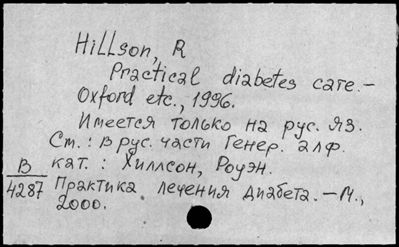 Hillson, R
Practical diabetes care.-
Oxford etc., 1996.
Имеется только на рус. яз.
См.: в рус. части Генер. алф.
кат.: Хиллсон, Роуэн.
В
4287
Практика лечения диабета.-М.,
2000.